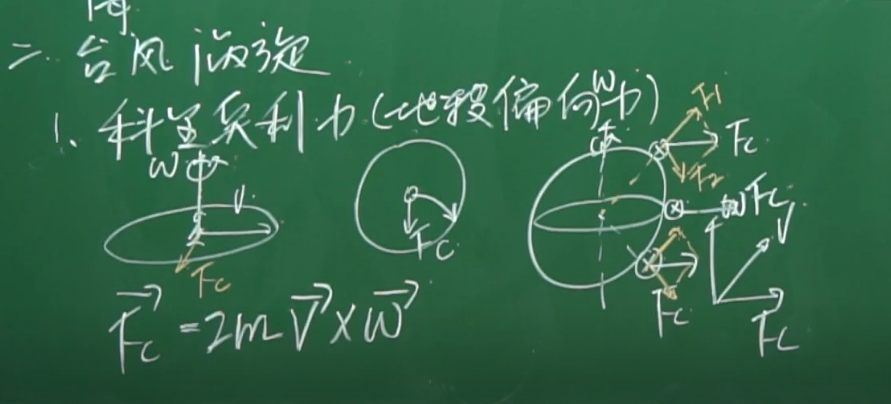 二、台风涡旋
1、科里奥利力(地转偏向力)
ω V Fc
Fc
ω F1 Fc F2 Fc Fc
ω V Fc
F⃗c = 2mV⃗ × ω⃗